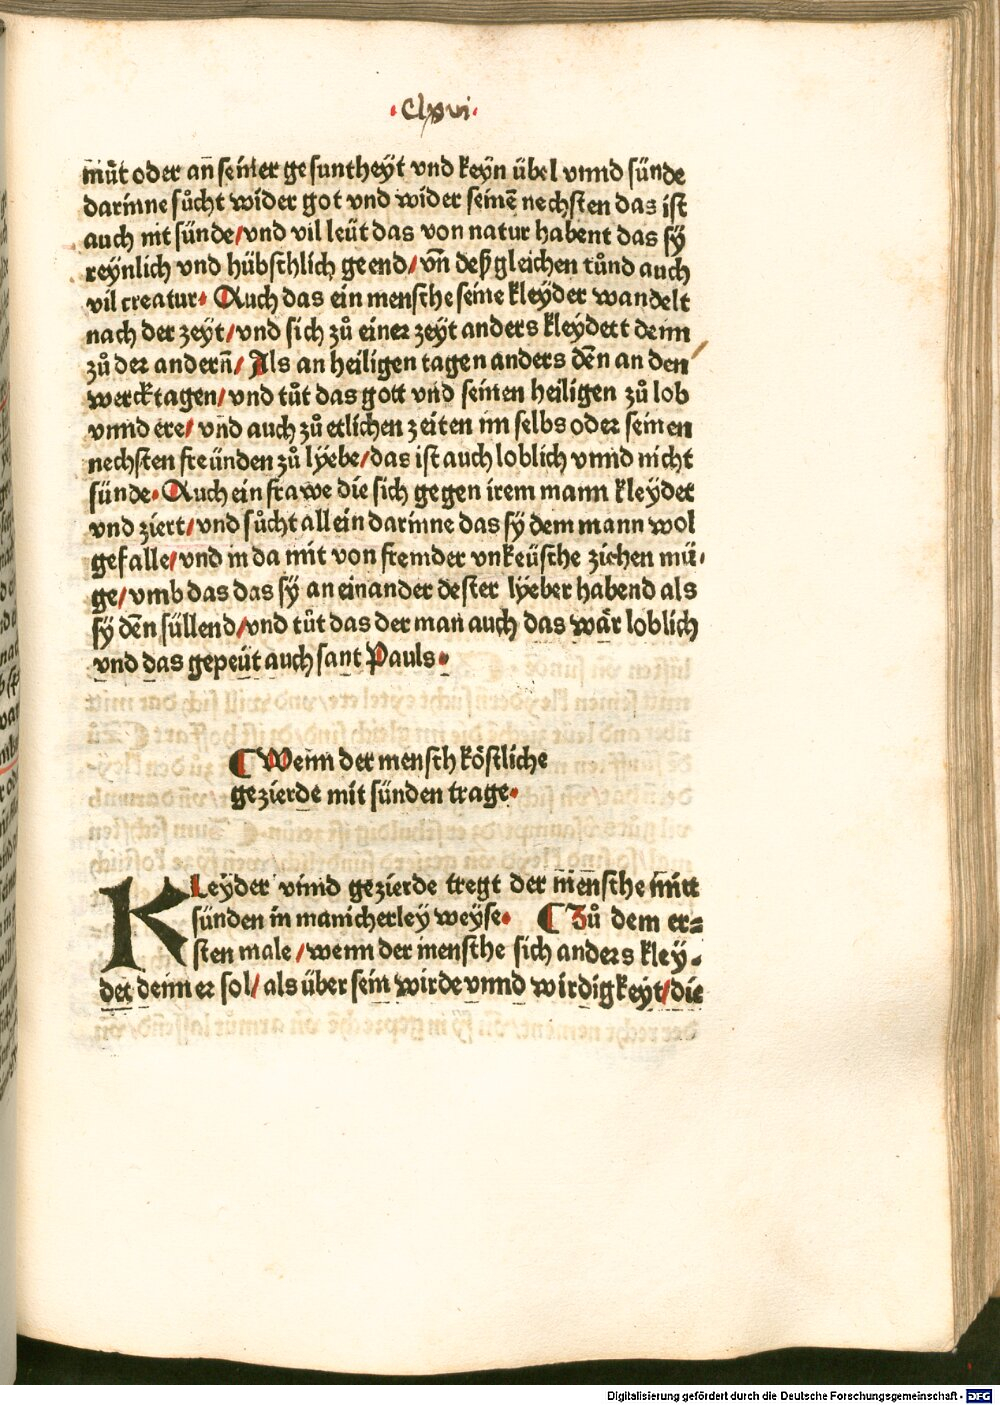 ·Clxvi·
můt oder an̄ seiner gesuntheyt vnd keyn übel vnnd sünde
darinne sůcht wider got vnd wider seinē nechsten das ist
auch nit sünde/vnd vil leüt das von natur habent das sÿ
reÿnlich vnd hübschlich geend/vn̄ deßgleichen tůnd auch
vil creatur· Auch das ein mensche seine kleÿder wandelt
nach der zeyt/vnd sich zů einer zeyt anders kleÿdett denn
zů der andern̄/Als an heiligen tagen anders dēn an den
wercktagen/vnd tůt das gott vnd seinen heiligen zů lob
vnnd ere/vnd auch zů etlichen zeiten im selbs oder seinen
nechsten freünden zů lÿebe/das ist auch loblich vnnd nicht
sünde· Auch ein frawe die sich gegen irem mann kleÿdet
vnd ziert/vnd sůcht allein darinne das sÿ dem mann wol
gefalle/vnd in da mit von fremder vnkeüsche ziehen mü-
ge/vmb das das sÿ an einander dester lÿeber habend als
sÿ dēn süllend/vnd tůt das der man auch das wår loblich
vnd das gepeüt auch sant Pauls·
¶ Wenn der mensch köstliche
gezierde mit sünden trage·
Kleÿder vnnd gezierde tregt der mensche mitt
sünden in manicherleÿ weÿse· ¶ Zů dem er=
sten male/wenn der mensche sich anders kley-
det denn er sol/als über sein wirde vnnd wirdigkeÿt/die
Digitalisierung gefördert durch die Deutsche Forschungsgemeinschaft - DFG